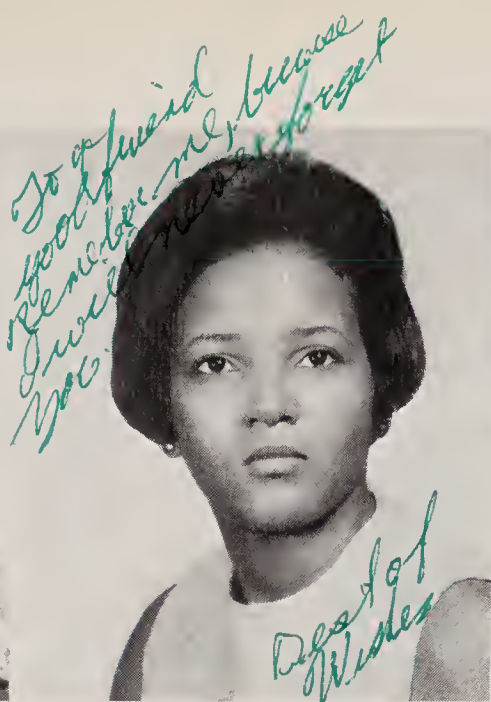 To a
good friend
Remember me, because
I will never forget
You.
Best of
Wishes